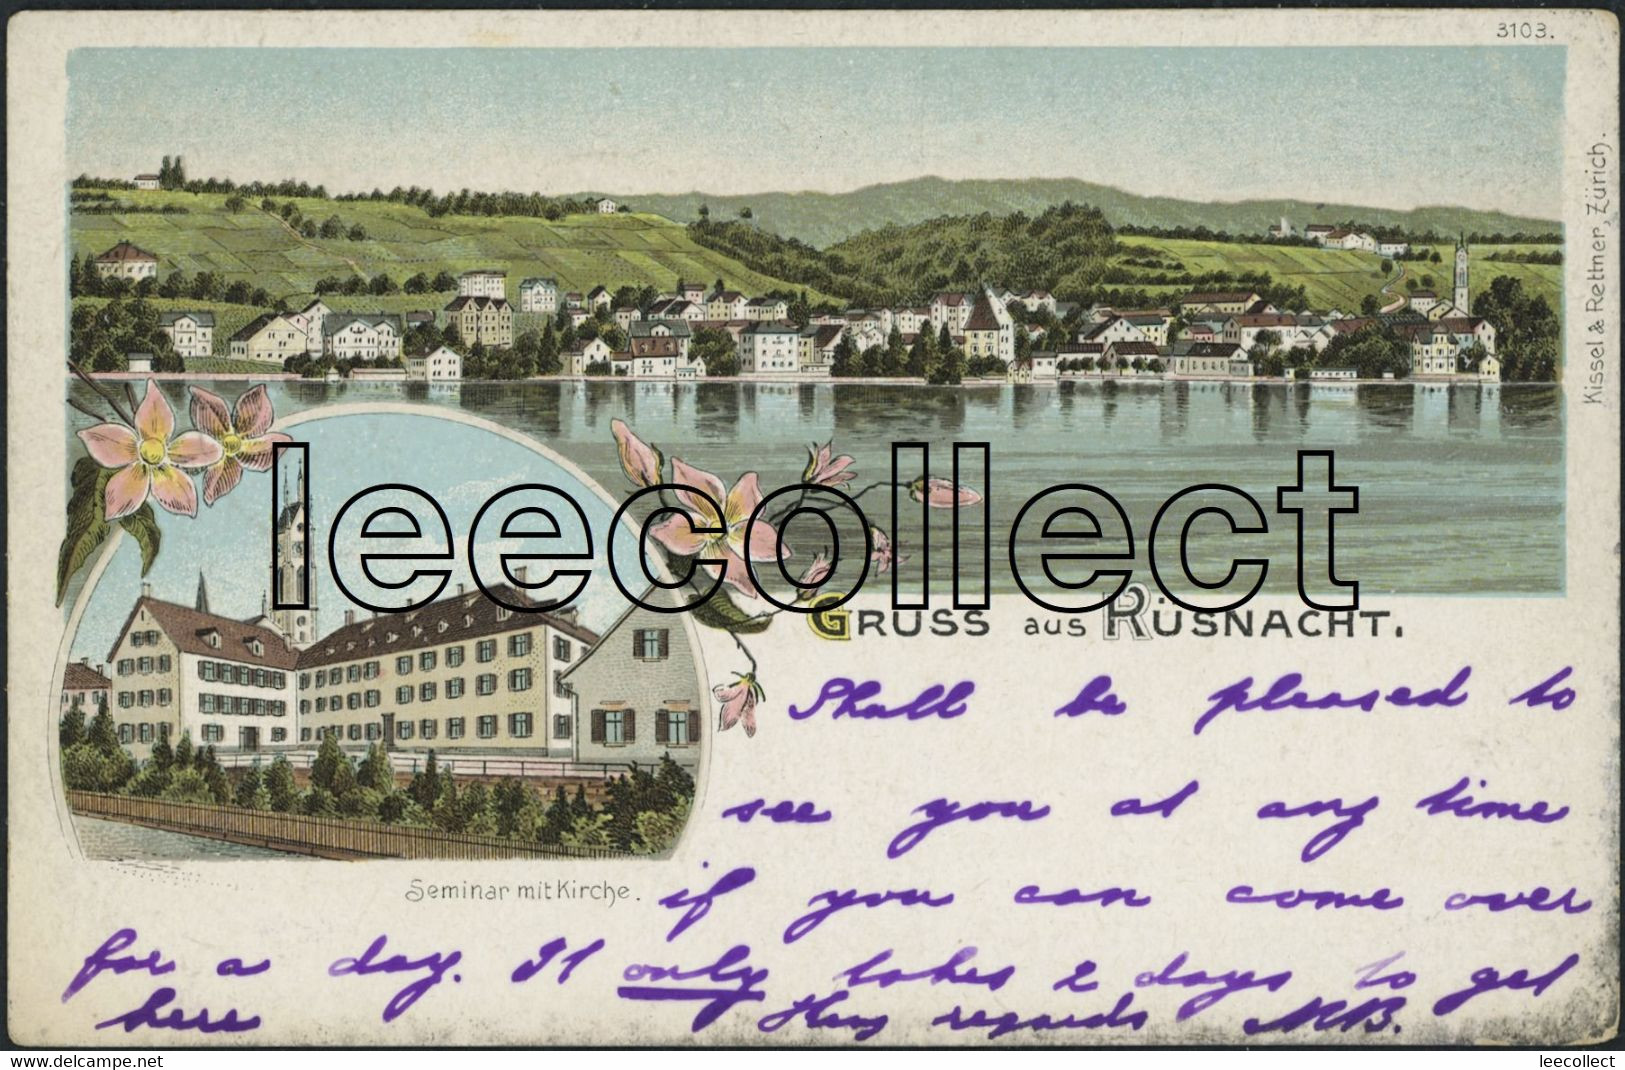 3103.
Kissel & Rettner, Zürich.
leecollect
GRUSS AUS RÜSNACHT.
Shall be pleased to
see you at any time
Seminar mit Kirche.
if you can come over
for a day. It only takes 2 days to get
here regards MB.
Click to see large
leecollect